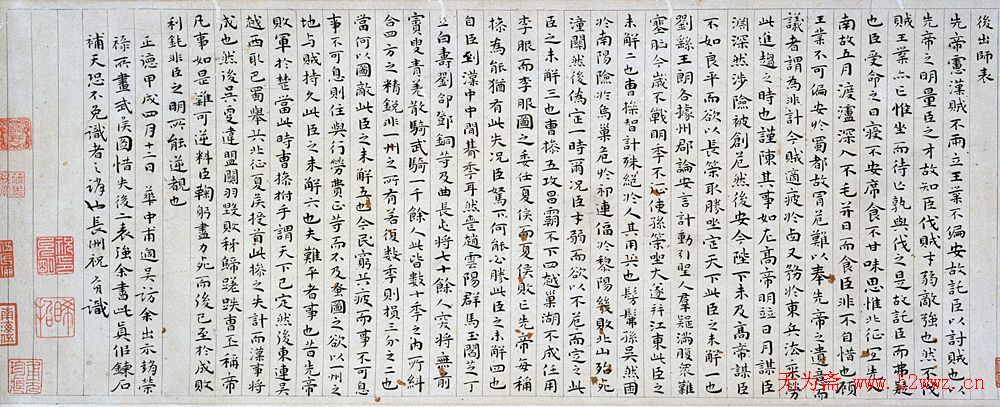 後出師表
先帝慮漢賊不兩立王業不偏安故託臣以討賊也以
先帝之明量臣之才故知臣伐賊才弱敵強也然不伐
賊王業亦亡惟坐而待亡孰與伐之是故託臣而弗疑
也臣受命之日寢不安席食不甘味思惟北征宜先入
南故五月渡瀘深入不毛并日而食臣非不自惜也顧
王業不可偏安於蜀都故冒危難以奉先帝之遺意而
議者謂為非計今賊適疲於西又務於東兵法乘勞
此進趨之時也謹陳其事如左高帝明並日月謀臣
淵深然涉險被創危然後安今陛下未及高帝謀臣
不如良平而欲以長策取勝坐定天下此臣之未解一也
劉繇王朗各據州郡論安言計動引聖人羣疑滿腹衆難
塞胸今歲不戰明年不征使孫策坐大遂并江東此臣之
未解二也曹操智計殊絕於人其用兵也髣髴孫吳然困
於南陽險於烏巢危於祁連偪於黎陽幾敗北山殆死
潼關然後偽定一時爾況臣才弱而欲以不危而定之此
臣之未解三也曹操五攻昌霸不下四越巢湖不成任用
李服而李服圖之委任夏侯而夏侯敗亡先帝每稱
操為能猶有此失況臣駑下何能必勝此臣之未解四也
自臣到漢中中間朞年耳然喪趙雲陽群馬玉閻芝丁
立白壽劉郃鄧銅等及曲長屯將七十餘人突將無前
賨叟青羌散騎武騎一千餘人此皆數十年之內所糾
合四方之精銳非一州之所有若復數年則損三分之二也
當何以圖敵此臣之未解五也今民窮兵疲而事不可息
事不可息則住與行勞費正等而不及蚤圖之欲以一州之
地与賊持久此臣之未解六也夫難平者事也昔先帝
敗軍於楚當此時曹操拊手謂天下已定然後東連吳
越西取巴蜀舉兵北征夏侯授首此操之失計而漢事將
成也然後吳更違盟關羽毀敗秭歸蹉跌曹丕稱帝
凡事如是難可逆料臣鞠躬盡力死而後已至於成敗
利鈍非臣之明所能逆覩也
正德甲戌四月十二日華中甫過吳訪余出示趙榮
祿所畫武侯圖惜失後二表強余書此真作鍊石
補天恐不免識者之誚也長州祝允明識
无为斋
www.52wwz.cn